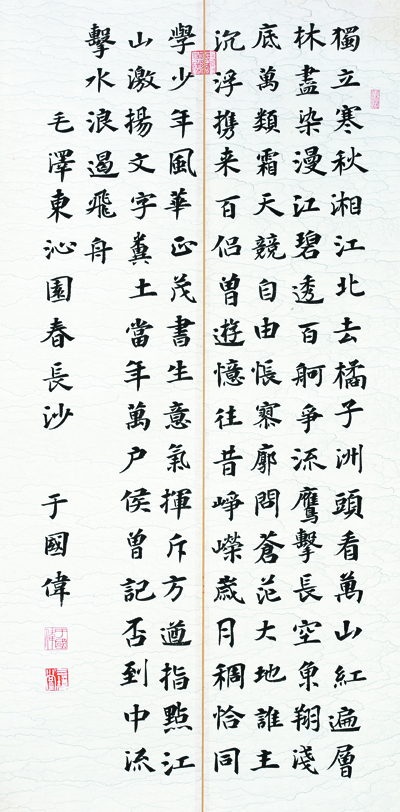 獨立寒秋湘江北去橘子洲頭看萬山紅遍層
林盡染漫江碧透百舸爭流鷹擊長空魚翔淺
底萬類霜天競自由悵寥廓問蒼茫大地誰主
沉浮携来百侣曾遊憶往昔崢嶸歲月稠恰同
學少年風華正茂書生意氣揮斥方遒指點江
山激揚文字糞土當年萬户侯曾記否到中流
擊水浪遏飛舟
毛澤東沁園春長沙 于國偉